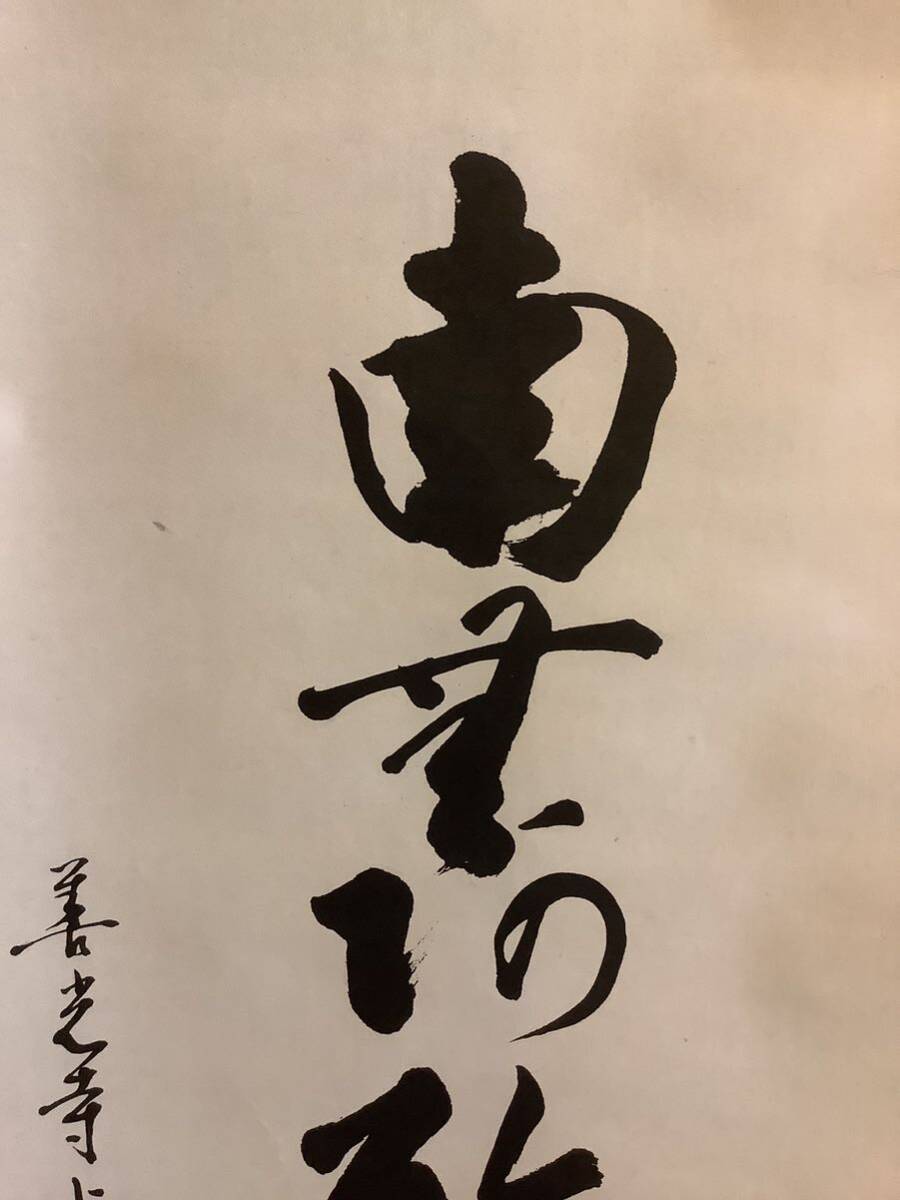 南無阿弥
善光寺上